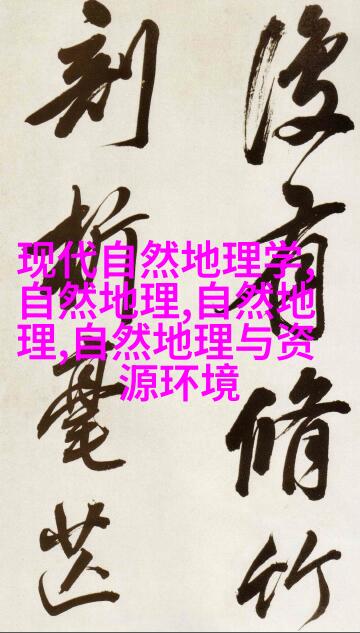 现代自然地理学,
自然地理,自然地
理,自然地理与资
源环境
有脩竹
刻析毫